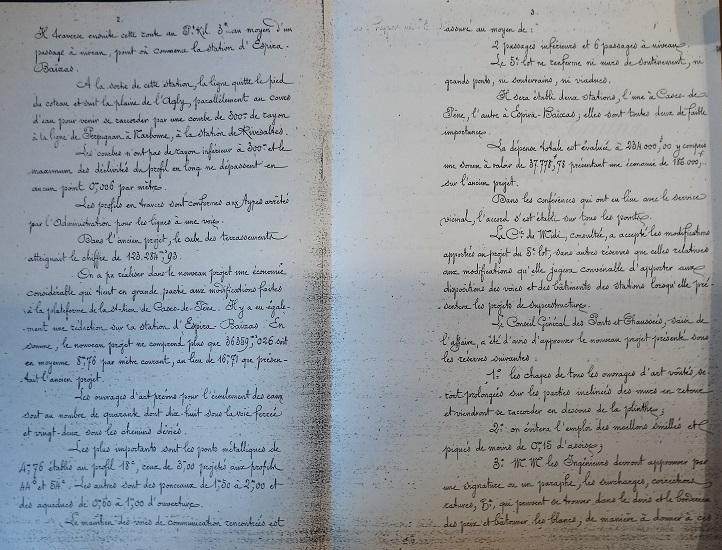 2.
Il traverse ensuite cette route au Pt Kil. 3m au moyen d'un
passage à niveau, point où commence la station d'Espira-
Baixas.
A la sortie de cette station, la ligne quitte le pied
du coteau et suit la plaine de l'Agly, parallèlement au cours
d'eau pour venir se raccorder par une courbe de 300m de rayon
à la ligne de Perpignan à Narbonne, à la station de Rivesaltes.
Les courbes n'ont pas de rayon inférieur à 300m et le
maximum des déclivités du profil en long ne dépassent en
aucun point 0,006 par mètre.
Les profils en travers sont conformes aux types arrêtés
par l'Administration pour les lignes à une voie.
Dans l'ancien projet, le cube des terrassements
atteignait le chiffre de 123.284,m93.
On a pu réaliser dans le nouveau projet une économie
considérable qui tient en grande partie aux modifications faites
à la plateforme de la station de Cases-de-Pène. Il y a eu égale-
ment une réduction sur la station d'Espira-Baixas. En
somme, le nouveau projet ne comprend plus que 36359,m026 soit
en moyenne 5,m76 par mètre courant, au lieu de 16,m71 que présen-
tait l'ancien projet.
Les ouvrages d'art prévus pour l'écoulement des eaux
sont au nombre de quarante dont dix-huit sous la voie ferrée
et vingt-deux sous les chemins déviés.
Les plus importants sont les ponts métalliques de
4,m76 établis au profil 18a, ceux de 5,00 projetés aux profils
44a et 54a. Les autres sont des ponceaux de 1,m50 à 2,m00 et
des aqueducs de 0,m60 à 1,m00 d'ouverture.
Le maintien des voies de communication rencontrées est
3.
assuré au moyen de :
2 passages inférieurs et 6 passages à niveau.
Le 5e lot ne renferme ni murs de soutènement, ni
grands ponts, ni souterrains, ni viaducs.
Il sera établi deux stations, l'une à Cases-de-
Pène, l'autre à Espira-Baixas; elles sont toutes deux de faible
importance.
La dépense totale est évaluée à 234.000,f00 y compris
une somme à valoir de 37.778,f78 présentant une économie de 186.000,f
sur l'ancien projet.
Dans les conférences qui ont eu lieu avec le service
vicinal, l'accord s'est établi sur tous les points.
La Cie du Midi, consultée, a accepté les modifications
apportées au projet du 5e lot, sans autres réserves que celles relatives
aux modifications qu'elle jugera convenable d'apporter aux
dispositions des voies et des bâtiments des stations lorsqu'elle pré-
sentera les projets de superstructure.
Le Conseil Général des Ponts et Chaussées, saisi de
l'affaire, a été d'avis d'approuver le nouveau projet présenté sous
les réserves suivantes :
1o les chapes de tous les ouvrages d'art voûtés, se-
ront prolongées sur les parties inclinées des murs en retour
et viendront se raccorder en dessous de la plinthe;
2o on évitera l'emploi des moellons smillés et
piqués de moins de 0,m15 d'assise;
3o M.M. les Ingénieurs devront approuver par
une signature ou un paraphe, les surcharges, corrections,
ratures, &a, qui peuvent se trouver dans le devis et le bordereau
des prix et bâtonner les blancs, de manière à donner à ces